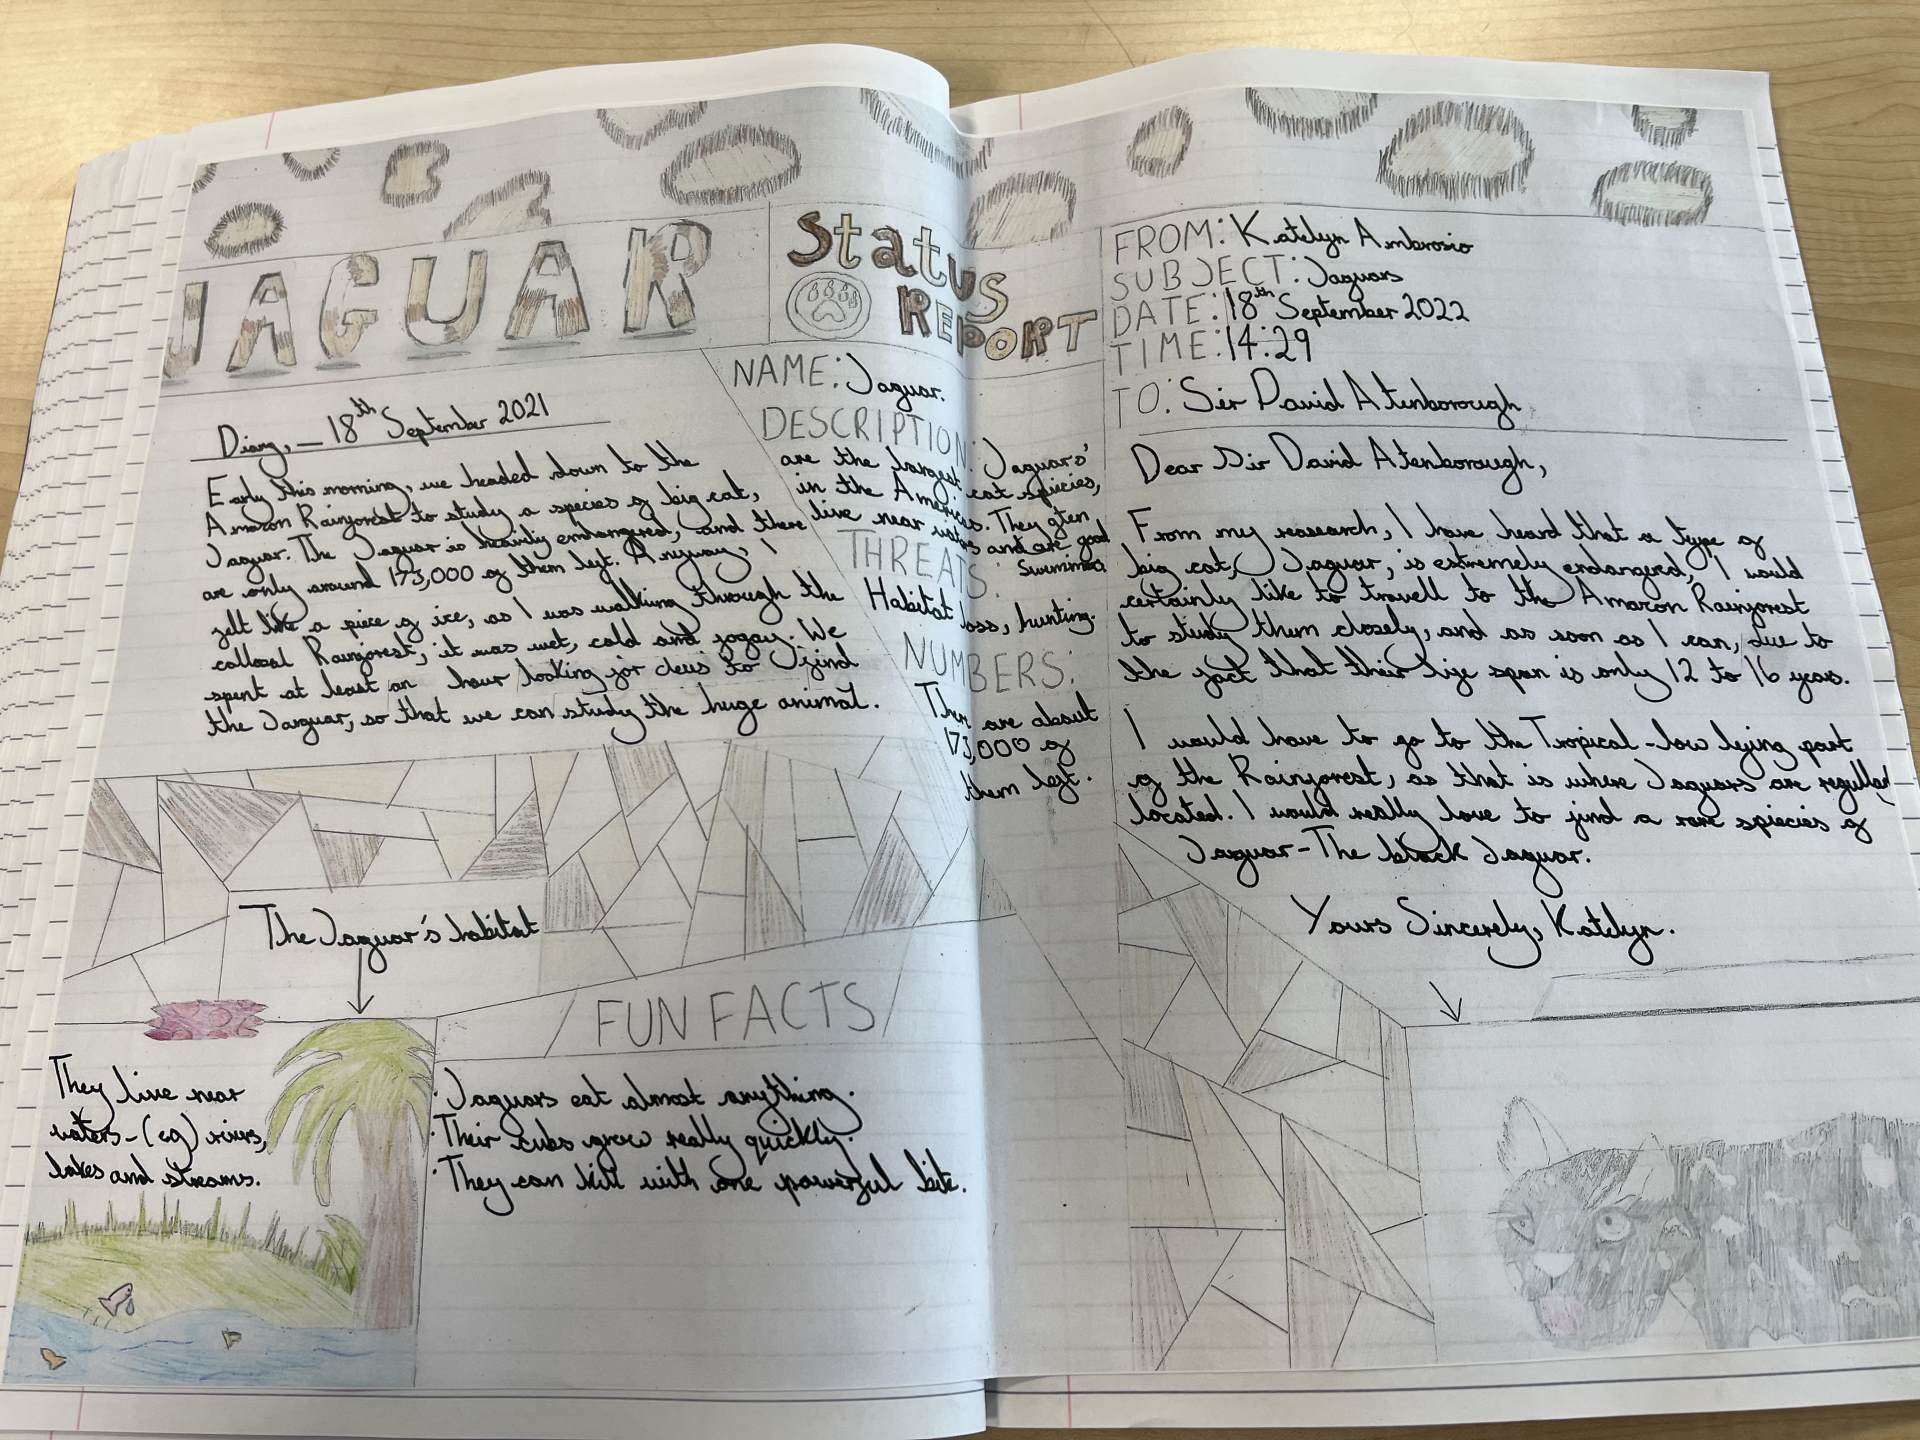 JAGUAR
Diary, – 18th September 2021
Early this morning, we headed down to the
Amazon Rainforest to study a species of big cat,
Jaguar. The Jaguar is heavily endangered, and there
are only around 173,000 of them left. Anyway, I
felt like a piece of ice, as I was walking through the
collosal Rainforest; it was wet, cold and foggy. We
spent at least an hour looking for clues to find
the Jaguar, so that we can study the huge animal.
Status
REPORT
NAME: Jaguar.
DESCRIPTION: Jaguars'
are the largest cat spiecies,
in the Americas. They often
live near waters and are good
swimmers.
THREATS:
Habitat loss, hunting.
NUMBERS:
There are about
173,000 of
them left.
The Jaguar's habitat
They live near
waters – (eg) rivers,
lakes and streams.
FUN FACTS
· Jaguars eat almost anything.
· Their cubs grow really quickly.
· They can kill with one powerful bite.
FROM: Katelyn Ambrosio
SUBJECT: Jaguars
DATE: 18th September 2022
TIME: 14:29
TO: Sir David Atenborough
Dear Sir David Atenborough,
From my reasearch, I have heard that a type of
big cat, Jaguar, is extremely endangered, I would
certainly like to travell to the Amazon Rainforest
to study them closely, and as soon as I can, due to
the fact that their life span is only 12 to 16 years.
I would have to go to the Tropical – low lying part
of the Rainforest, as that is where Jaguars are
located. I would really love to find a rare spiecies of
Jaguar – The black Jaguar.
Yours Sincerely, Katelyn.